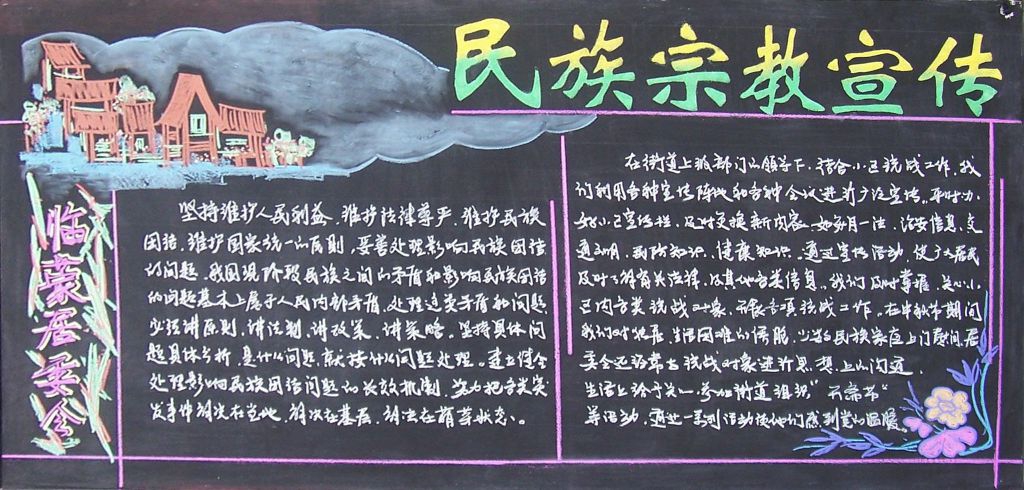 民族宗教宣传
临蒙居委会
坚持维护人民利益、维护法律尊严、维护民族
团结、维护国家统一的原则，妥善处理影响民族团结
的问题。我国现阶段民族之间的矛盾和影响民族团结
的问题基本上属于人民内部矛盾，处理这类矛盾和问题
讲原则、讲法制、讲政策、讲策略。坚持具体问
题具体分析，是什么问题就按什么问题处理。建立健全
处理影响民族团结问题的长效机制，努力把各类突
发事件解决在当地、解决在基层、解决在萌芽状态。
在街道上级部门的领导下，结合小区统战工作，我
们利用各种宣传阵地和各种会议进行广泛宣传。
小区宣传栏，及时更换新内容，如每月一法，治安信息，交
通文明，民防知识，健康知识。通过宣传活动，使广大居民
及时了解有关法律，及其他各类信息。我们及时掌握、关心小
区内各类统战对象，开展各项统战工作。在中秋节期间
我们对地居、生活困难的侨胞、少数民族家庭上门慰问，居
委会还经常与统战对象进行思想上的沟通，
生活上给予关心，参加街道组织"开斋节"
等活动，通过一系列活动使他们感到党的温暖。